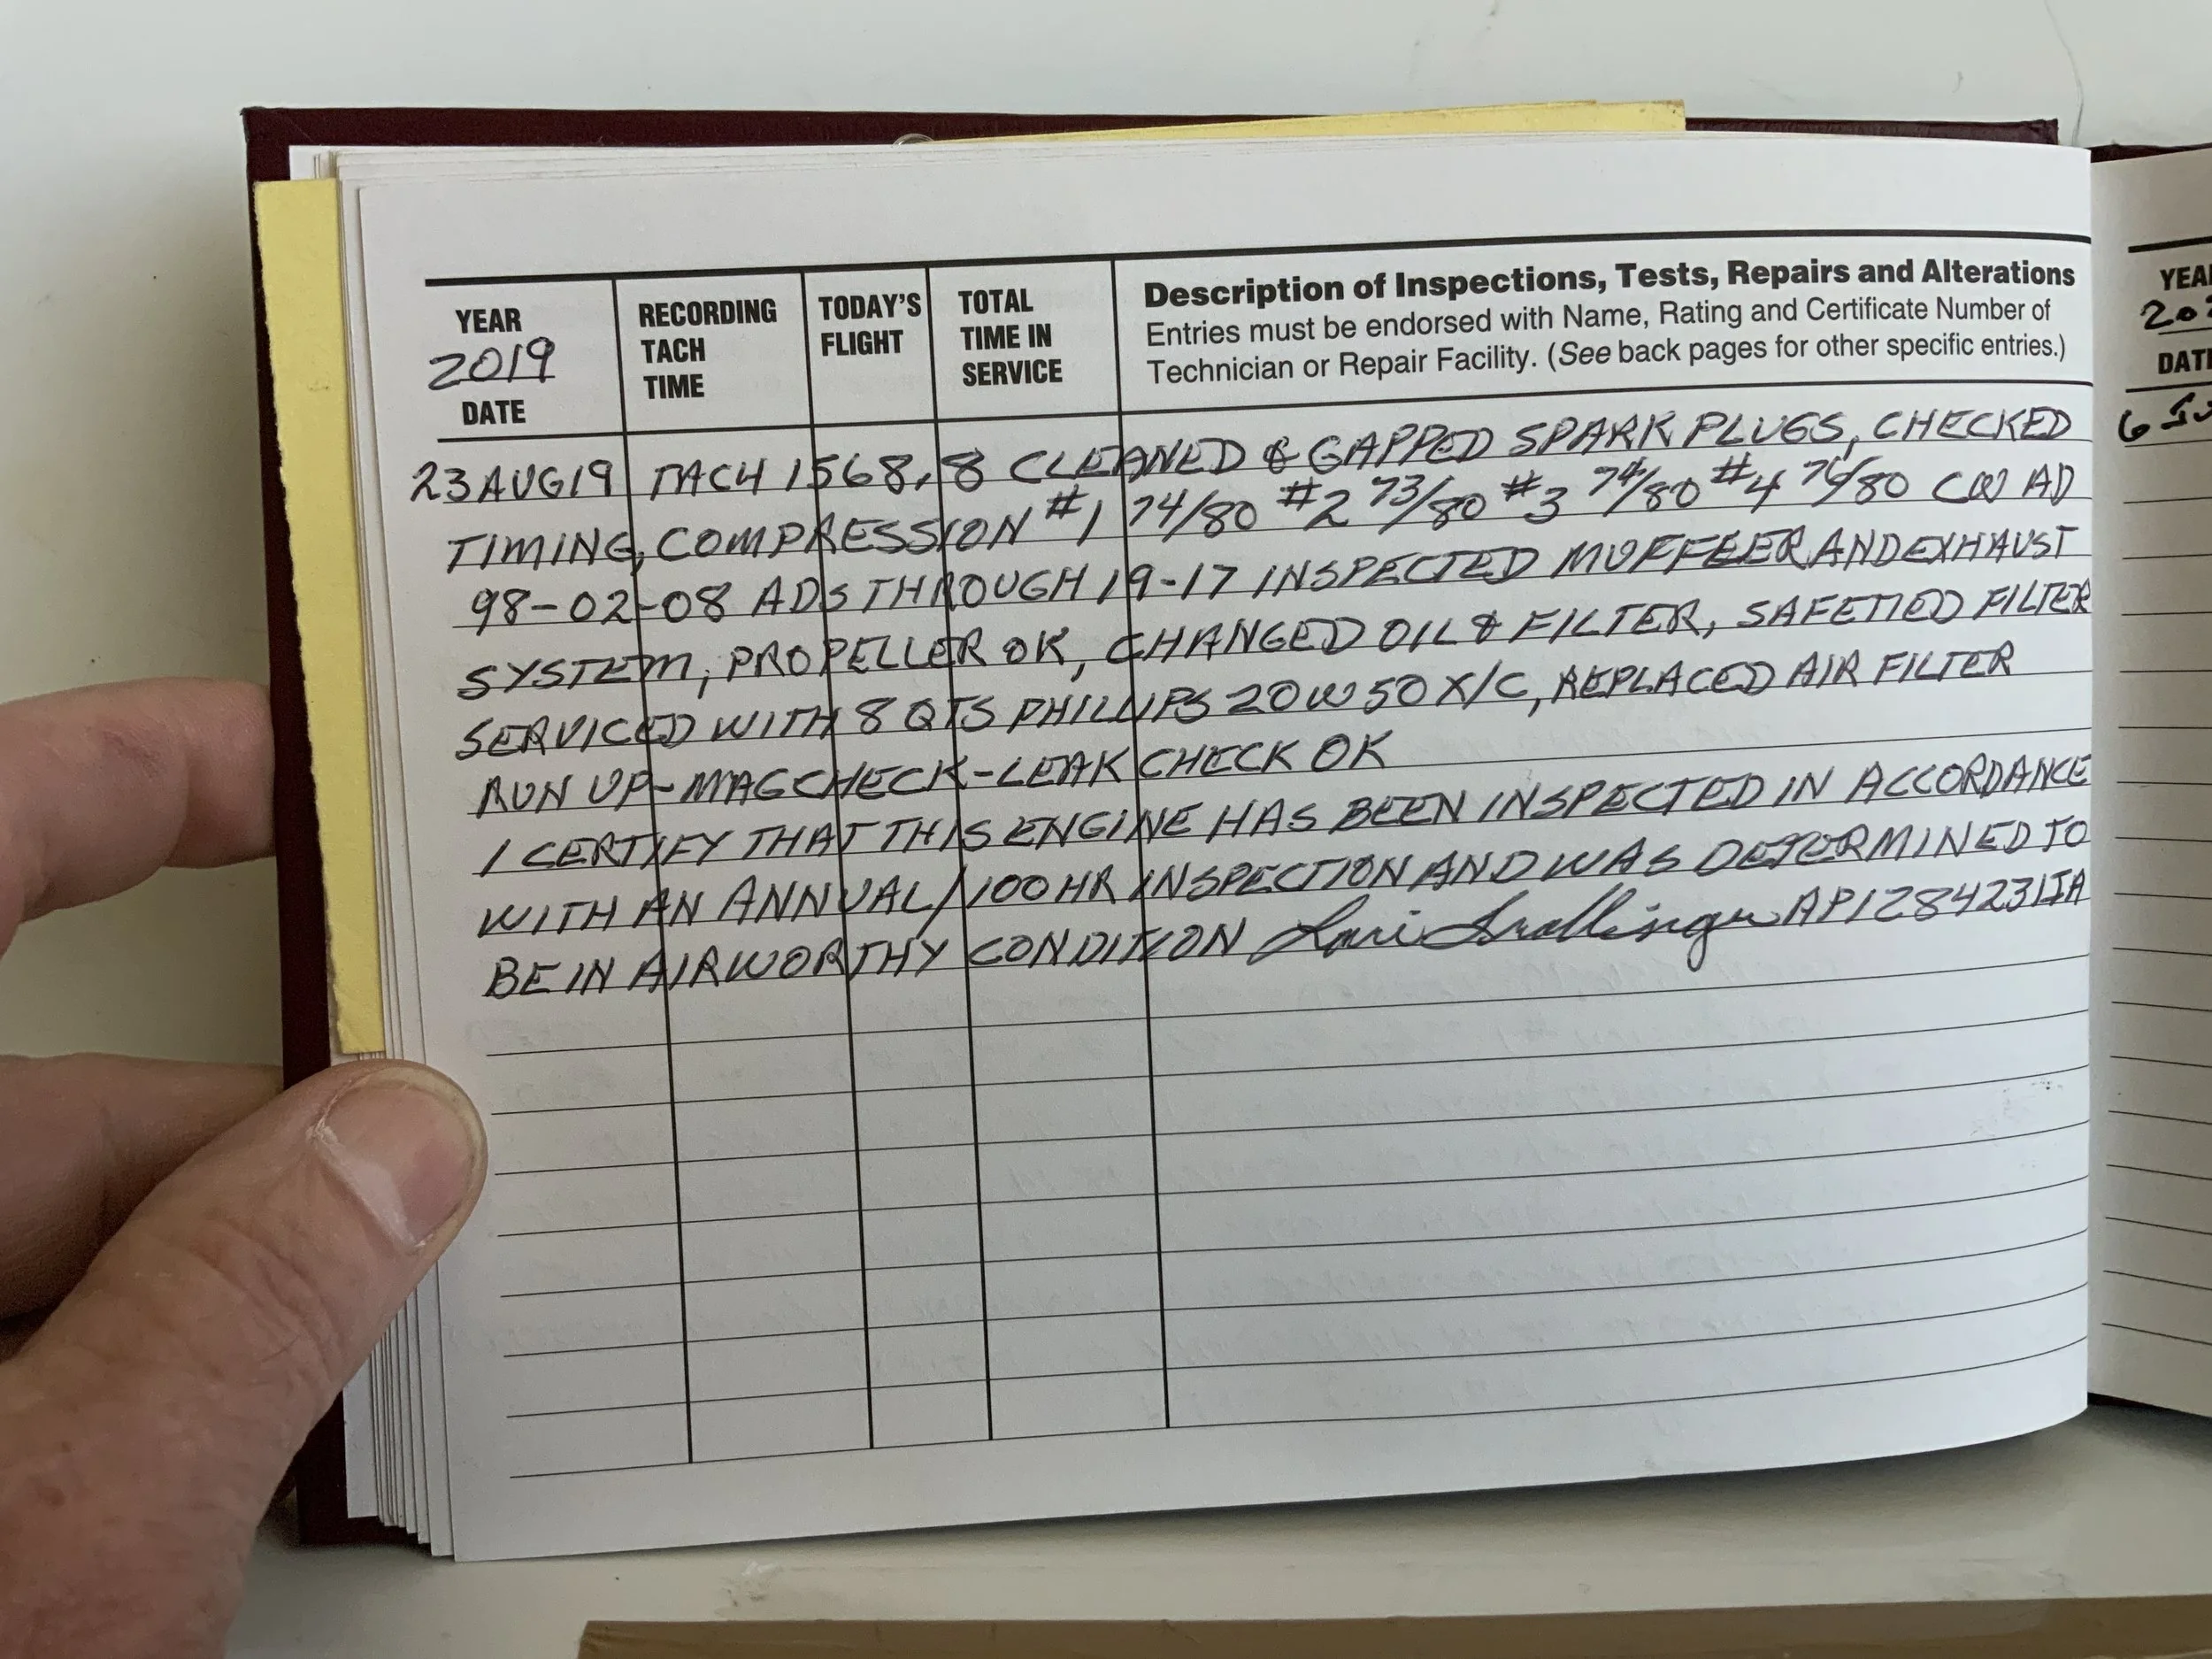 YEAR
2019
DATE
RECORDING
TACH
TIME
TODAY'S
FLIGHT
TOTAL
TIME IN
SERVICE
Description of Inspections, Tests, Repairs and Alterations
Entries must be endorsed with Name, Rating and Certificate Number of
Technician or Repair Facility. (See back pages for other specific entries.)
23 AUG 19 TACH 1568.8 CLEANED & GAPPED SPARK PLUGS, CHECKED
TIMING, COMPRESSION #1 74/80 #2 73/80 #3 74/80 #4 76/80 CW AD
98-02-08 ADS THROUGH 19-17 INSPECTED MUFFEER AND EXHAUST
SYSTEM, PROPELLER OK, CHANGED OIL & FILTER, SAFETIED FILTER
SERVICED WITH 8 QTS PHILLIPS 20W50 X/C, REPLACED AIR FILTER
RUN UP-MAG CHECK-LEAK CHECK OK
I CERTIFY THAT THIS ENGINE HAS BEEN INSPECTED IN ACCORDANCE
WITH AN ANNUAL/100 HR INSPECTION AND WAS DETERMINED TO
BE IN AIRWORTHY CONDITION Lori AP1284231IA